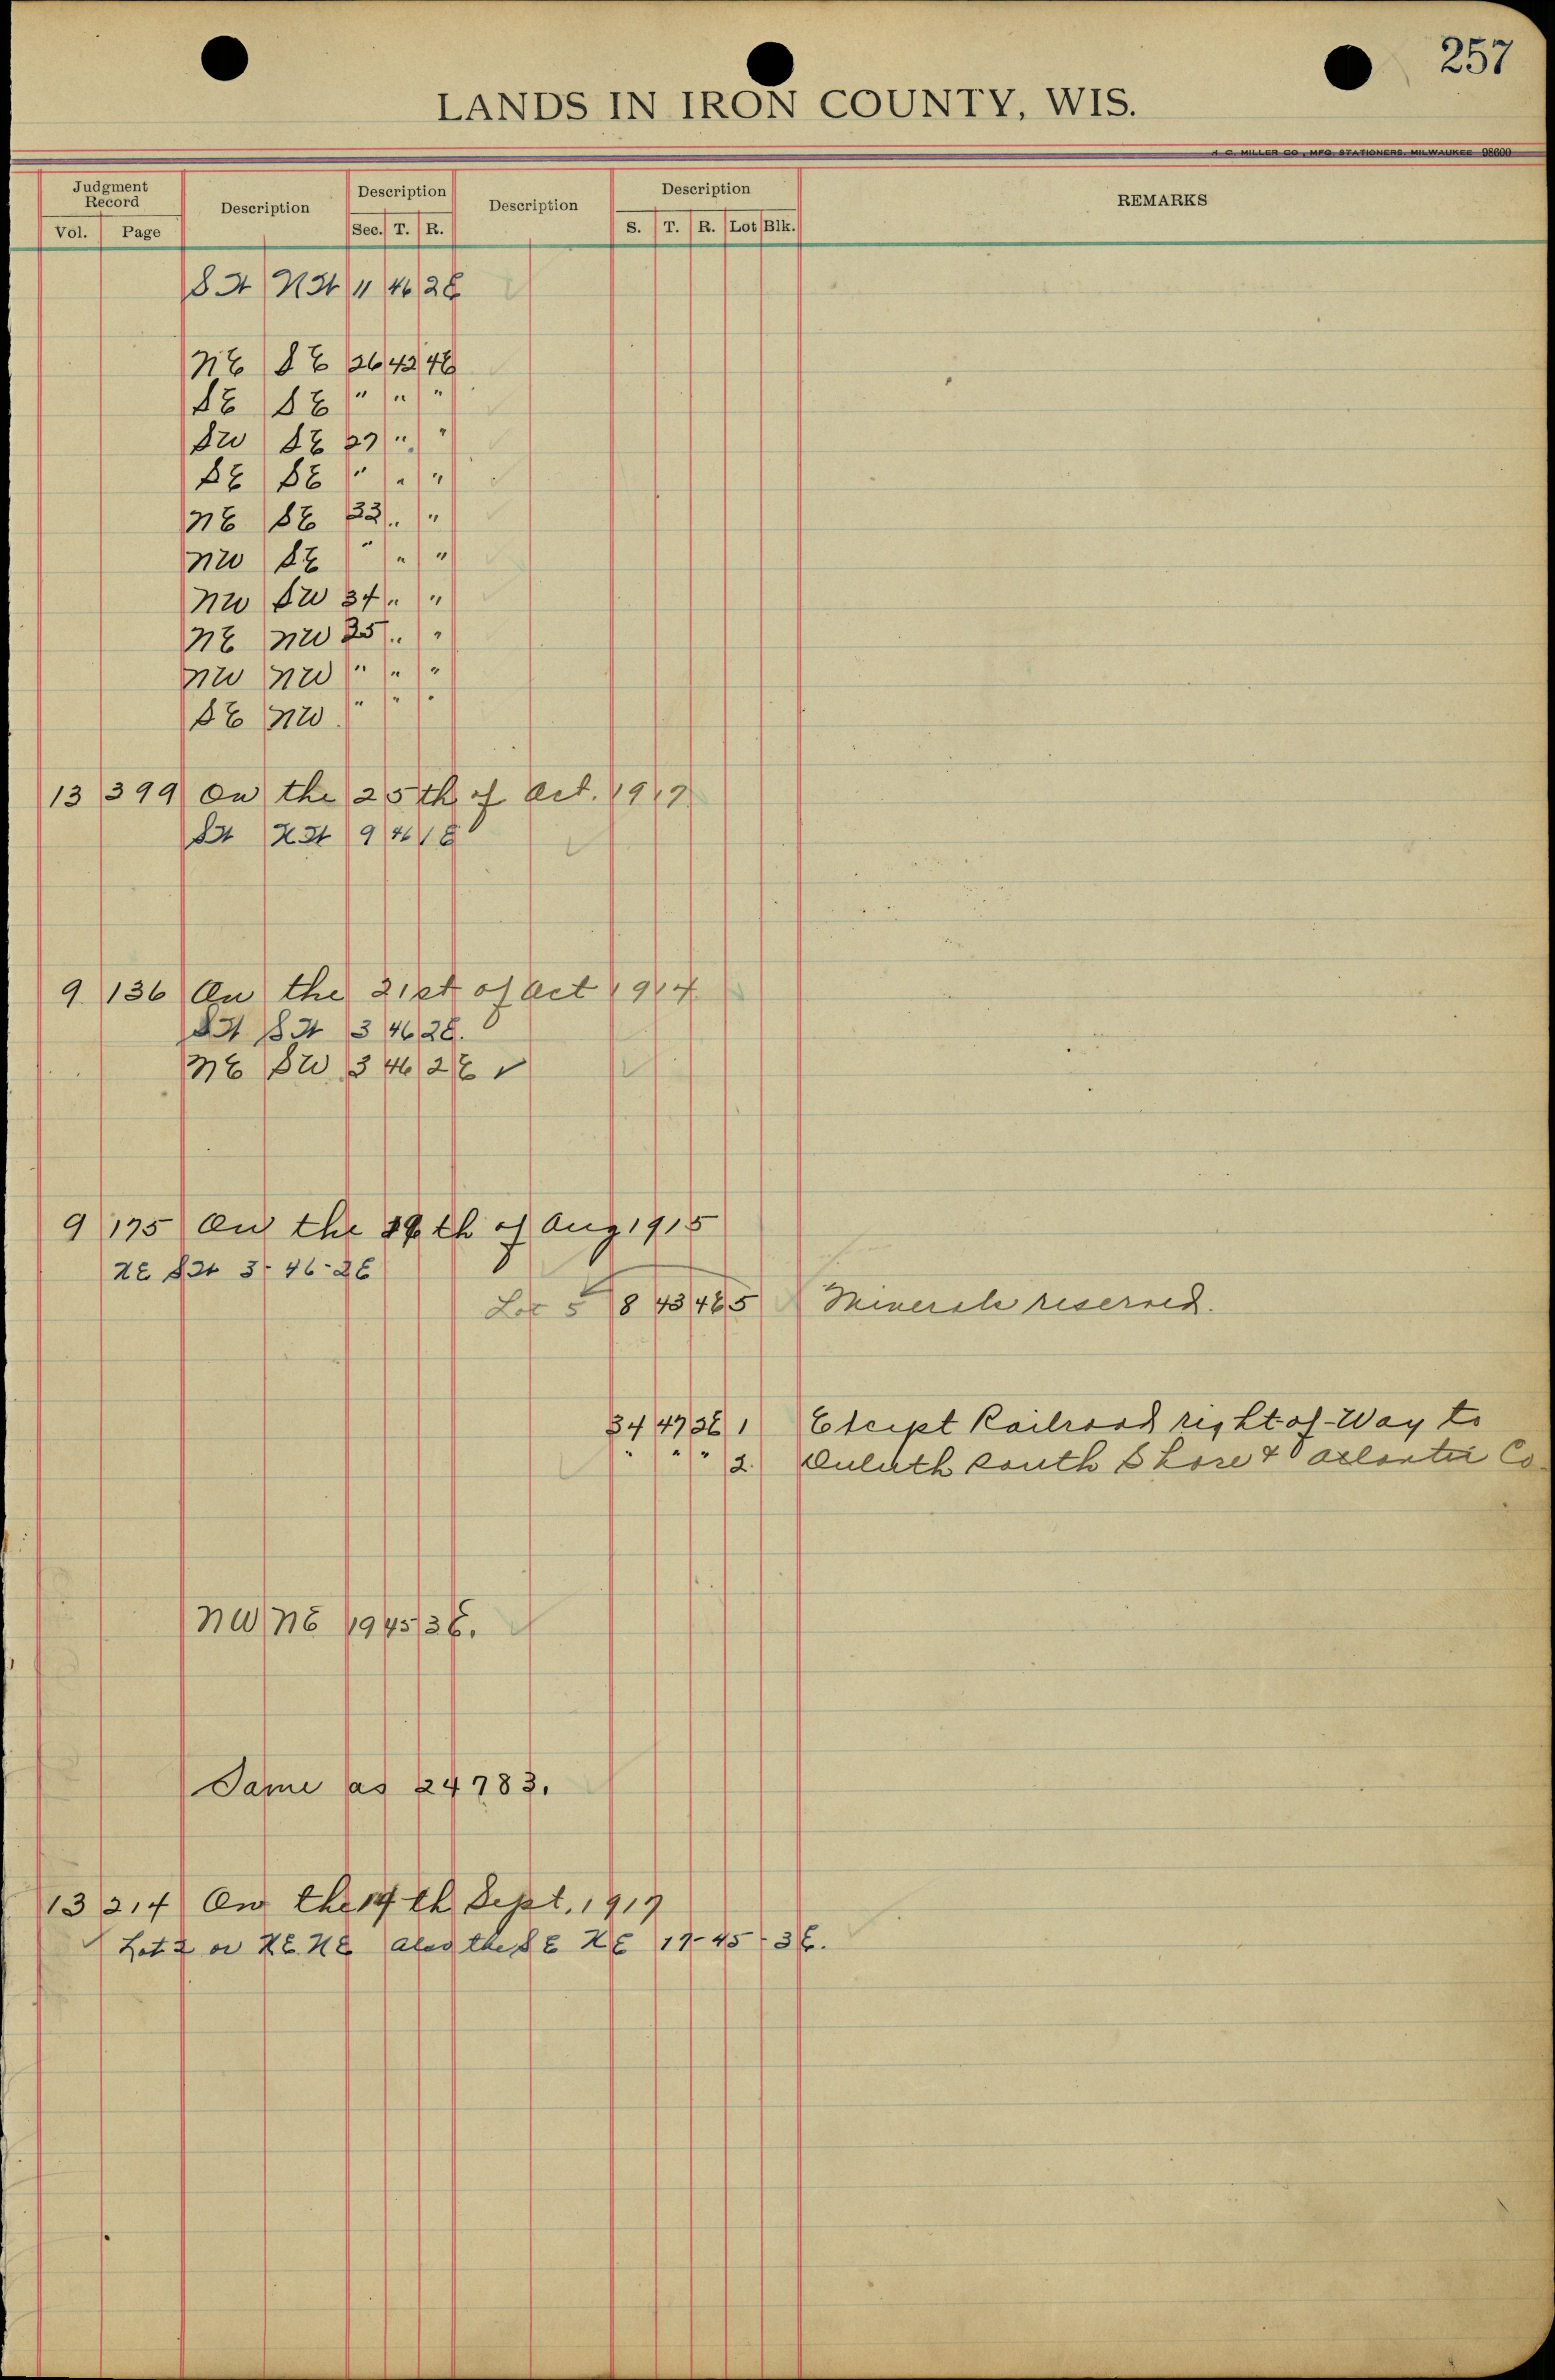 257
LANDS IN IRON COUNTY, WIS.
H. C. MILLER CO., MFG. STATIONERS, MILWAUKEE 98600
Judgment Record Description Description Description Description REMARKS
Vol. Page Sec. T. R. S. T. R. Lot Blk.
11 46 2E
NE SE 26 42 4E
SE SE " " "
SW SE 27 " "
SE SE " " "
NE SE 33 " "
NW SE " " "
NW SW 34 " "
NE NW 35 " "
NW NW " " "
SE NW " " "
13 399 On the 25th of Oct. 1917
9 46 1E
9 136 On the 21st of Oct 1914
3 46 2E.
NE SW 3 46 2E
9 175 On the th of Aug 1915
NE 3-46-2E
Lot 5 8 43 4E 5 Minerals reserved.
34 47 3E 1 Except Railroad right-of-Way to
" " " 2. Duluth South Shore & Atlantic Co.
NW NE 19 45 3E.
Same as 24783.
13 214 On the th Sept. 1917
Lot 2 or NE NE also the SE NE 19-45-3E.